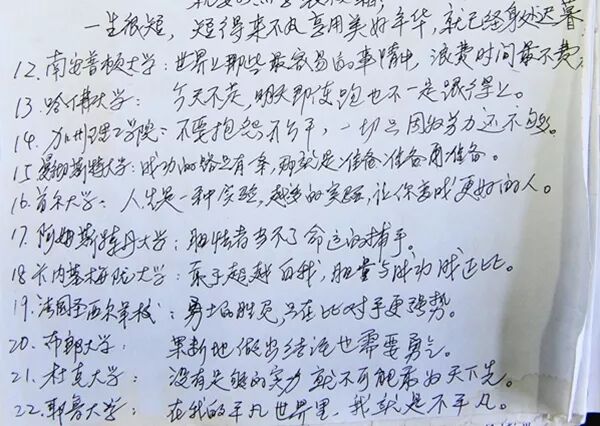 一生很短，短得来不及享用美好年华，就已经身处迟暮
12.南安普顿大学：世界上那些最容易的事情中，浪费时间最不费
13.哈佛大学：今天不走，明天即使跑也不一定跟得上。
14.加州理工学院：不要抱怨不公平，一切只因努力还不够。
15.曼彻斯特大学：成功的路只有一条，那就是准备准备再准备。
16.首尔大学：人生是一种实验，越多的实验，让你变成更好的人。
17.阿姆斯特丹大学：胆怯者当不了命运的捕手。
18.卡内基梅隆大学：敢于超越自我，胆量与成功成正比。
19.法国圣西尔军校：勇士的胜负，只在比对手更强势。
20.布朗大学：果断地做出结论也需要勇气。
21.杜克大学：没有足够的实力就不可能席为天下先。
22.耶鲁大学：在我的平凡世界里，我就是不平凡。